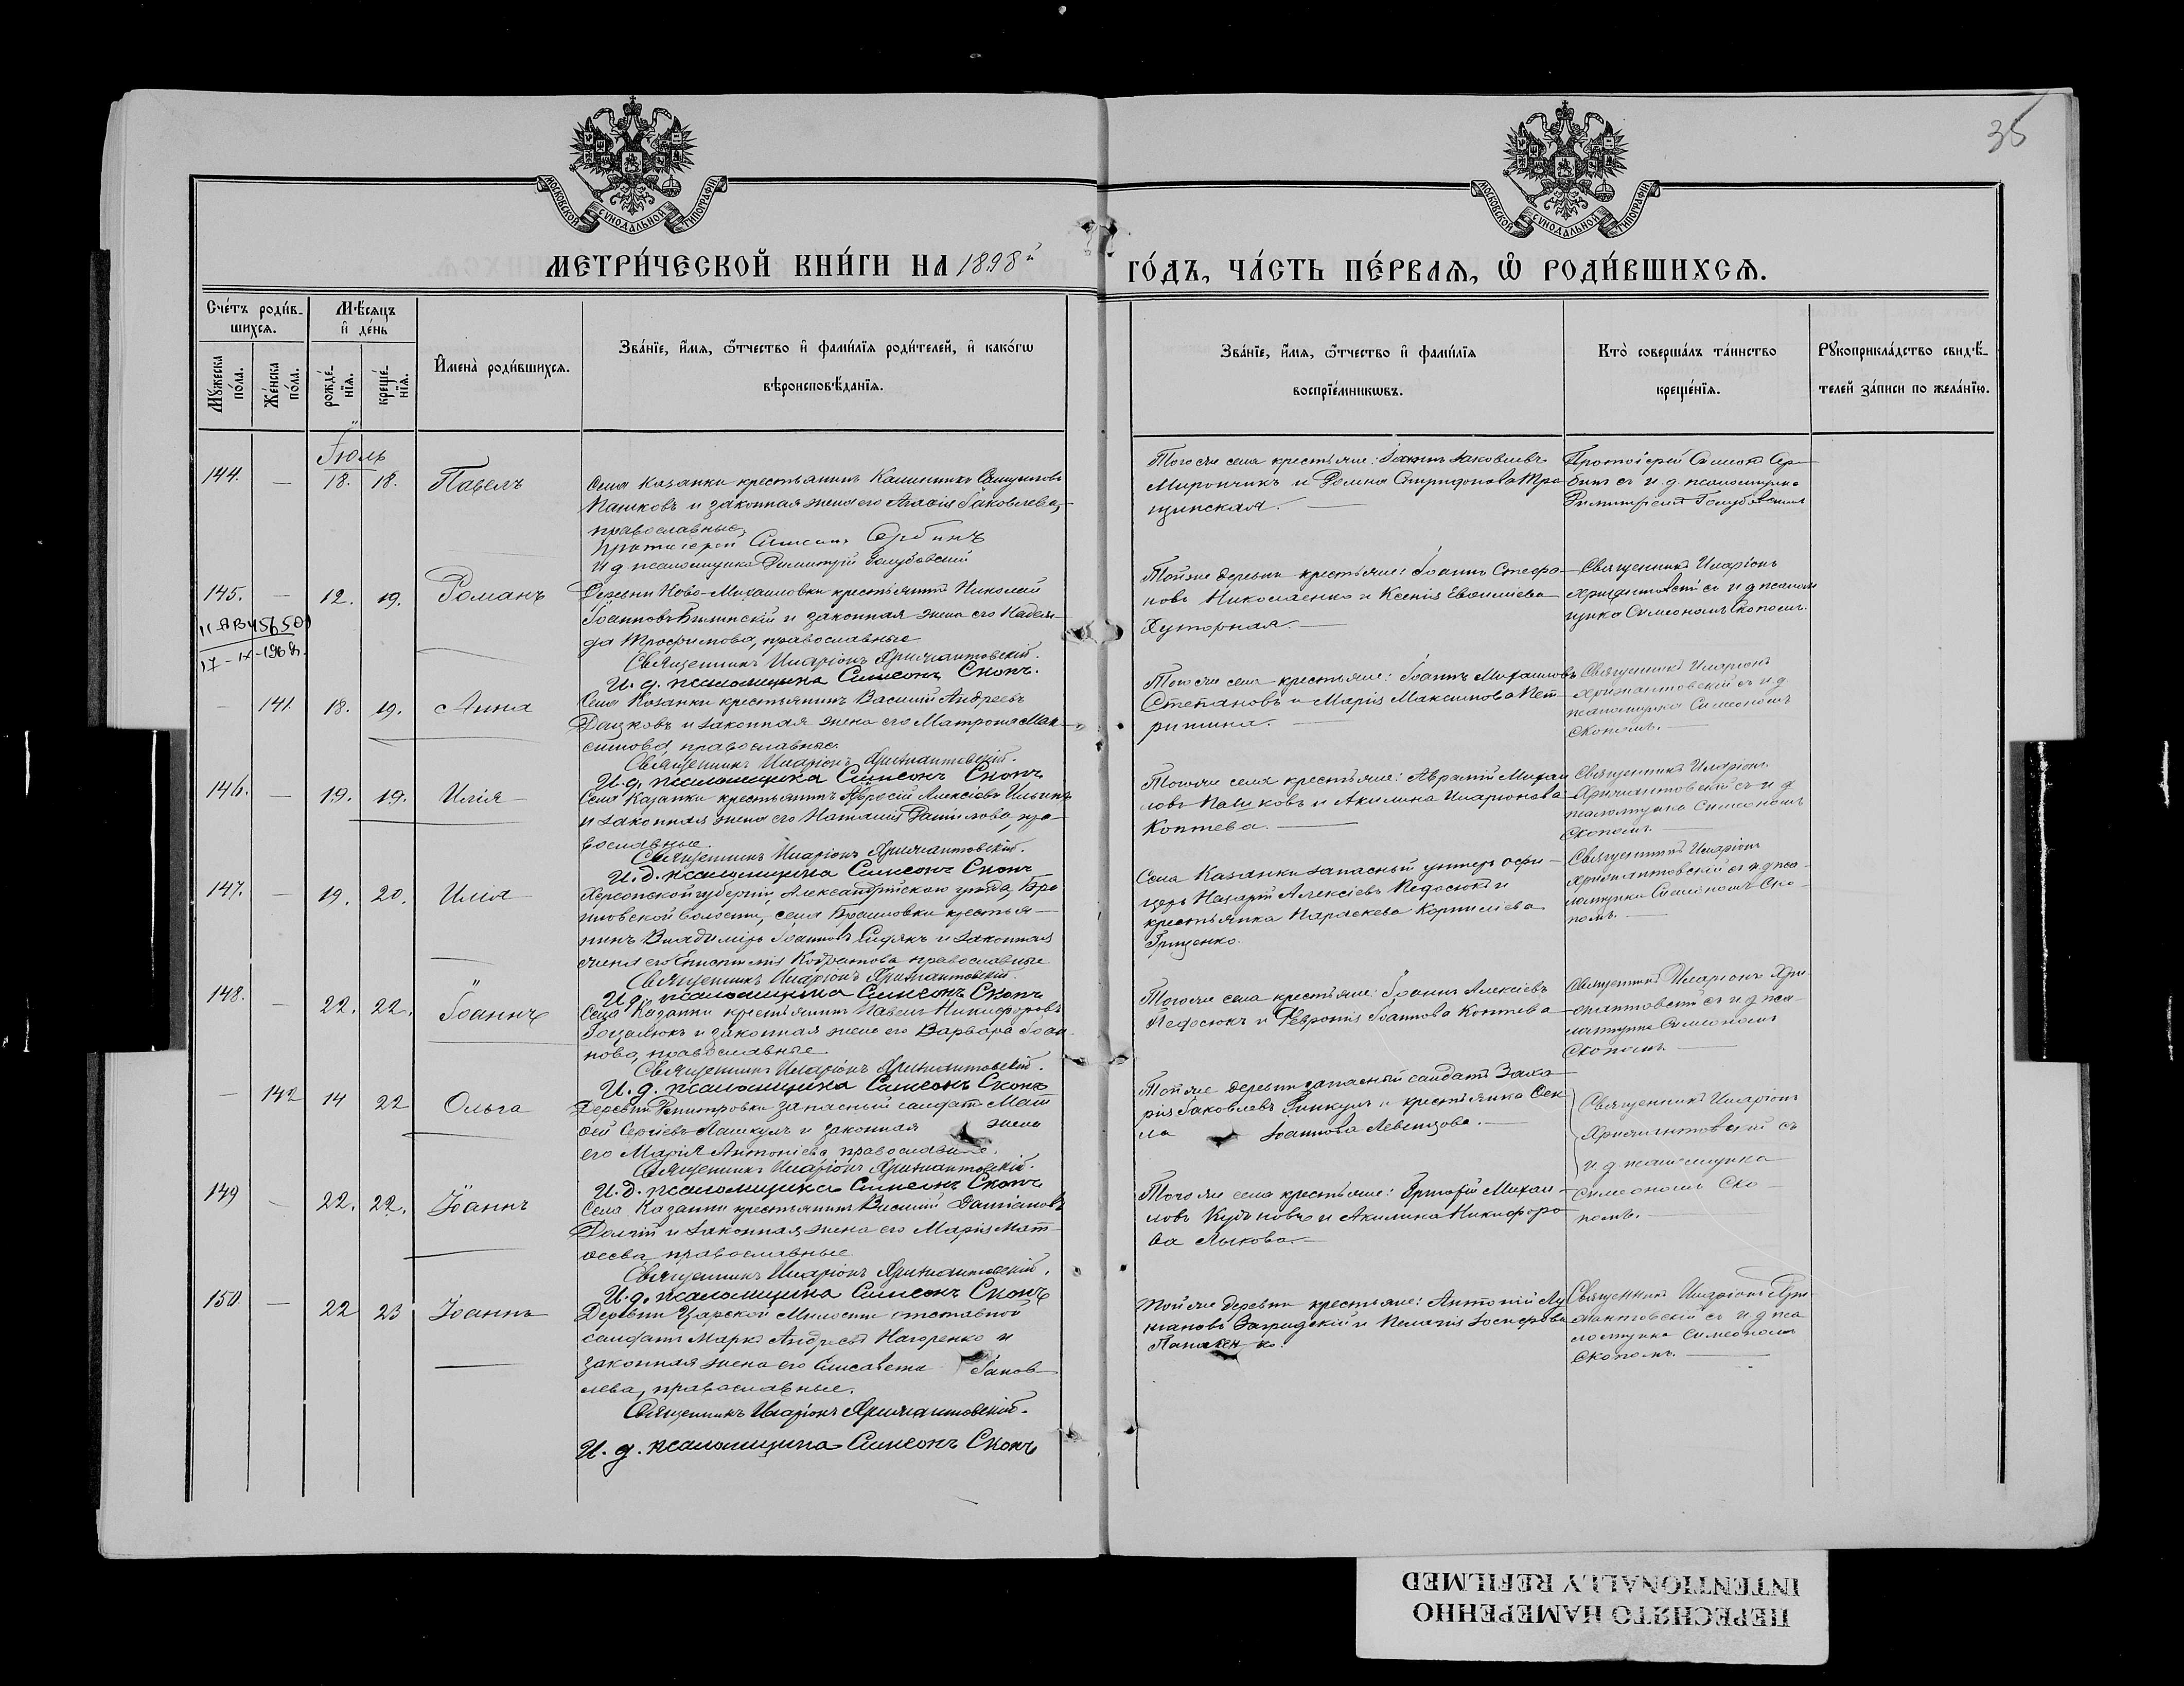 35
МОСКОВСКОЙ СѴНОДАЛЬНОЙ ТИПОГРАФІИ
МОСКОВСКОЙ СѴНОДАЛЬНОЙ ТИПОГРАФІИ
МЕТРИ́ЧЕСКОЙ КНИ́ГИ НА 1898й ГО́ДЪ, ЧА́СТЬ ПЕ́РВАѦ, Ѡ҆ РОДИ́ВШИХСѦ.
Сче́тъ роди́в-
шихсѧ.
Мꙋ́жеска по́ла.
Же́нска по́ла.
Мѣ́сѧцъ
и҆ де́нь
рожде́-
нїѧ.
креще́-
нїѧ.
И҆мена̀ роди́вшихсѧ.
Зва́нїе, и҆́мѧ, ѻ҆́тчество и҆ фами́лїѧ роди́телей, и҆ како́гѡ
вѣроисповѣ́данїѧ.
Зва́нїе, и҆́мѧ, ѻ҆́тчество и҆ фами́лїѧ
воспрїе́мникѡвъ.
Кто̀ соверша́лъ та́инство
креще́нїѧ.
Рꙋкоприкла́дство свидѣ́-
телей за́писи по жела́нїю.
Іюль
144. — 18. 18. Павелъ
Села Казанки крестьянинъ
Пашковъ и законная жена его Агаѳія Іаковлева,
православные
Протоіерей Симеонъ Сербинъ
И д псаломщика Димитрій Голубовскій
Того же села крестьяне: Іоаннъ Іаковлевъ
Мирончикъ и Спиридонова
щинская. —
Протоіерей Симеонъ Сер-
бинъ съ и д псаломщика
Димитріемъ Голубовскимъ
145. — 12. 19. Романъ
17-IX-1969.
Деревни Ново-Михайловки крестьянинъ Николай
Іоанновъ и законная жена его Надеж-
да Трофимова, православные
Священникъ Иларіонъ Крыжантовскій.
И. д. псаломщика Симеонъ Скопъ.
Той же деревни крестьяне: Іоаннъ Стефа-
новъ Николаенко и Ксенія Евѳиміева
Хуторная. —
Священникъ Иларіонъ
Крыжантовскій съ и д псалом-
щика Симеономъ Скопомъ.
— 141. 18. 19. Анна
Села Казанки крестьянинъ Василій Андреевъ
Дацковъ и законная жена его Матрона Мак-
симова, православные.
Священникъ Иларіонъ Крыжантовскій.
И. д. псаломщика Симеонъ Скопъ
Того же села крестьяне: Іоаннъ Михайловъ
Степановъ и Марія Максимова Пет-
ришина. —
Священникъ Иларіонъ
Крыжантовскій съ и д
псаломщика Симеономъ
Скопомъ. —
146. — 19. 19. Илія
Села Казанки крестьянинъ Алексіевъ Ильинъ
и законная жена его Наталія Данилова, пра-
вославные.
Священникъ Иларіонъ Крыжантовскій.
И. д. псаломщика Симеонъ Скопъ
Того же села крестьяне: Аврамій Михаи-
ловъ Пашковъ и Акилина Иларіонова
Коптева. —
Священникъ Иларіонъ
Крыжантовскій съ и д
псаломщика Симеономъ
Скопомъ. —
147. — 19. 20. Илія
Херсонской губерніи, Александрійскаго уѣзда,
волости, села крестья-
нинъ Владиміръ Іоанновъ и законная
жена его Кодратова православные
Священникъ Иларіонъ Крыжантовскій.
И. д. псаломщика Симеонъ Скопъ
Села Казанки запасный унтеръ офи-
церъ Назарій Алексіевъ Федосюкъ и
крестьянка Параскева Корниліева
Грищенко.
Священникъ Иларіонъ
Крыжантовскій съ и д пса-
ломщика Симеономъ Ско-
помъ. —
148. — 22. 22. Іоаннъ
Села Казанки крестьянинъ Павелъ Никифоровъ
и законная жена его Варвара Іоан-
нова, православные
Священникъ Иларіонъ Крыжантовскій.
И. д. псаломщика Симеонъ Скопъ
Того же села крестьяне: Іоаннъ Алексіевъ
Федосюкъ и Февронія Іоаннова Коптева
Священникъ Иларіонъ Кры-
жантовскій съ и д пса-
ломщика Симеономъ
Скопомъ —
— 142 14 22 Ольга
Деревни запасный солдатъ Мат-
ѳей Сергіевъ и законная жена
его Марія Антоніева православные.
Священникъ Иларіонъ Крыжантовскій.
И. д. псаломщика Симеонъ Скопъ
Той же деревни запасный солдатъ Заха-
рія Іаковлевъ и крестьянка
Іоаннова Левенцова. —
Священникъ Иларіонъ
Крыжантовскій съ
и д псаломщика
Симеономъ Ско-
помъ. —
149 — 22. 22. Іоаннъ
Села Казанки крестьянинъ Василій Даміановъ
Долгій и законная жена его Марія Мат-
ѳеева православные
Священникъ Иларіонъ Крыжантовскій.
И. д. псаломщика Симеонъ Скопъ
Того же села крестьяне: Михаи-
ловъ и Акилина Никифоро-
ва Лыкова —
150. — 22 23 Іоаннъ
Деревни Царской Милости отставной
солдатъ Маркъ Андреевъ Нагоренко и
законная жена его Елисавета Іаков-
лева, православные.
Священникъ Иларіонъ Крыжантовскій.
И. д. псаломщика Симеонъ Скопъ
Той же деревни крестьяне: Антоній Лу-
кіановъ и Пелагія Іосифова
Панасенко.
Священникъ Иларіонъ Кры-
жантовскій съ и д пса
ломщика Симеономъ
Скопомъ. —
ПЕРЕСНЯТО НАМЕРЕННО
INTENTIONALLY REFILMED